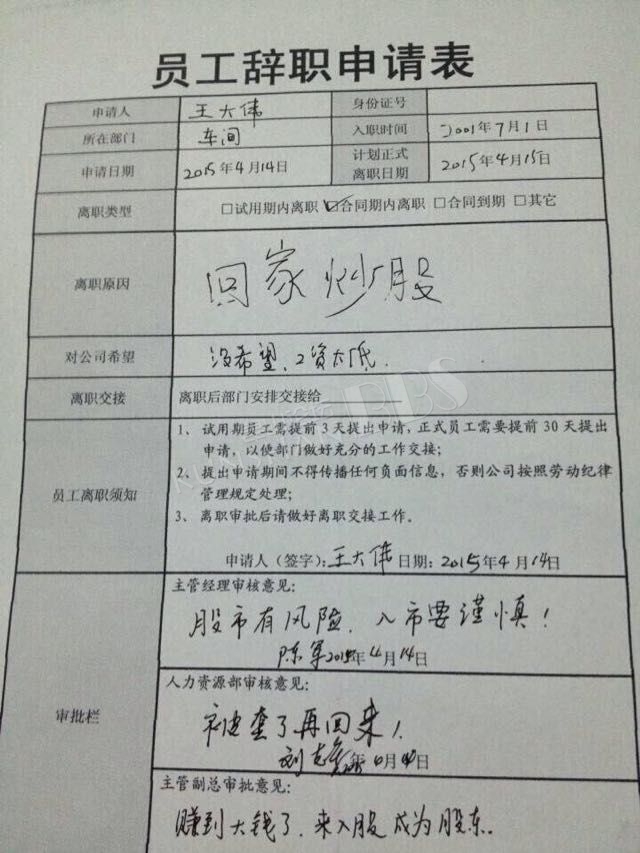 员工辞职申请表
申请人 王大伟 身份证号
所在部门 车间 入职时间 2001年7月1日
申请日期 2015年4月14日 计划正式
离职日期 2015年4月15日
离职类型 □试用期内离职 ☑合同期内离职 □合同到期 □其它
离职原因 回家炒股
对公司希望 没希望,工资太低.
离职交接 离职后部门安排交接给
员工离职须知
1、试用期员工需提前3天提出申请,正式员工需要提前30天提出
申请,以便部门做好充分的工作交接;
2、提出申请期间不得传播任何负面信息,否则公司按照劳动纪律
管理规定处理;
3、离职审批后请做好离职交接工作。
申请人(签字):王大伟 日期:2015年4月14日
审批栏
主管经理审核意见:
股市有风险,入市要谨慎!
陈军 2015年4月14日
人力资源部审核意见:
被套了再回来!
刘 年 月 日
主管副总审批意见:
赚到大钱了,来入股成为股东.